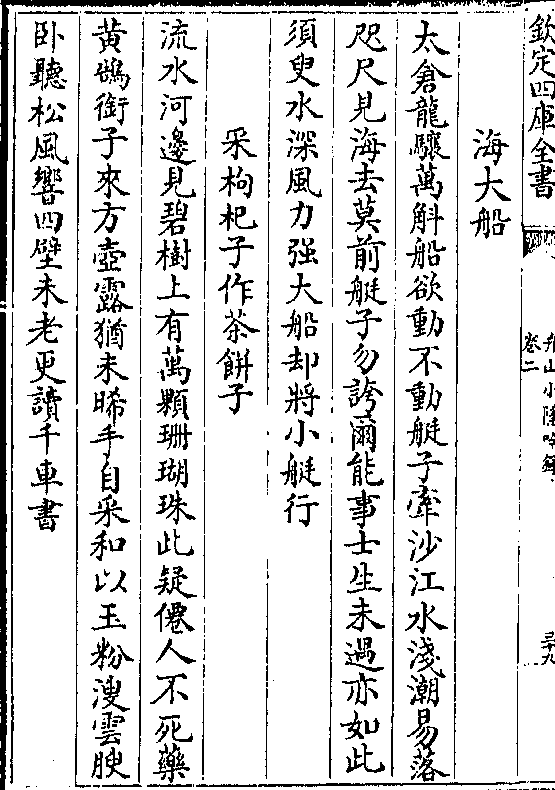 欽定四庫全書
卷二
海大船
太倉龍驤萬斛船欲動不動艇子牽沙江水淺潮易落
咫尺見海去莫前艇子勿誇爾能事士生未遇亦如此
須臾水深風力强大船却將小艇行
采枸杞子作茶餅子
流水河邊見碧樹上有萬顆珊瑚珠此疑僊人不死藥
黃鵠銜子來方壺露猶未晞手自采和以玉粉溲雲腴
卧聽松風響四壁未老更讀千車書